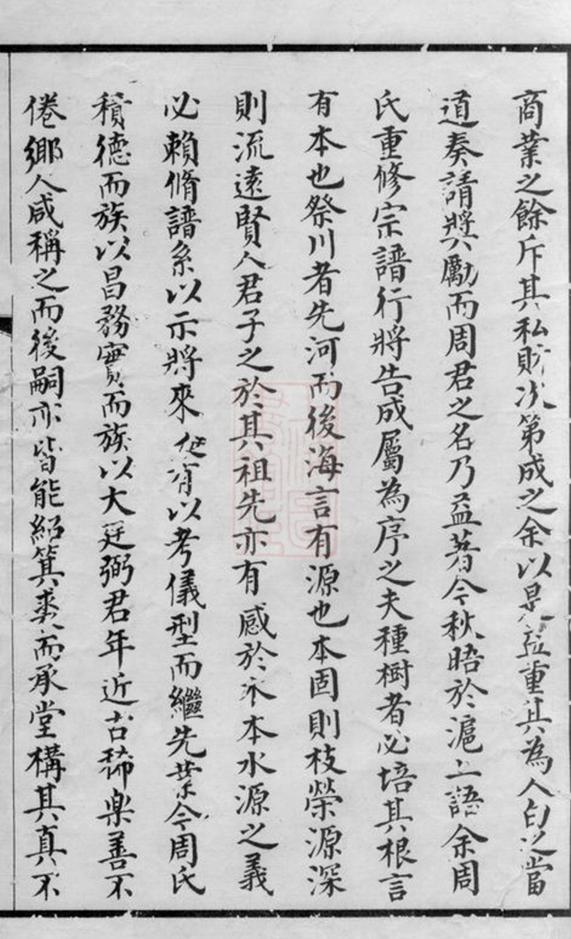 商業之餘斥其私財次第成之余以是益重其為人白之當
道奏請獎勵而周君之名乃益著今秋晤於滬上語余周
氏重修宗譜行將告成屬為序之夫種樹者必培其根言
有本也祭川者先河而後海言有源也本固則枝榮源深
則流遠賢人君子之於其祖先亦有感於木本水源之義
必賴脩譜系以示將來使有以考儀型而繼先業今周氏
積德而族以昌務實而族以大廷弼君年近古稀樂善不
倦鄉人咸稱之而後嗣亦皆能紹箕裘而承堂構其真不